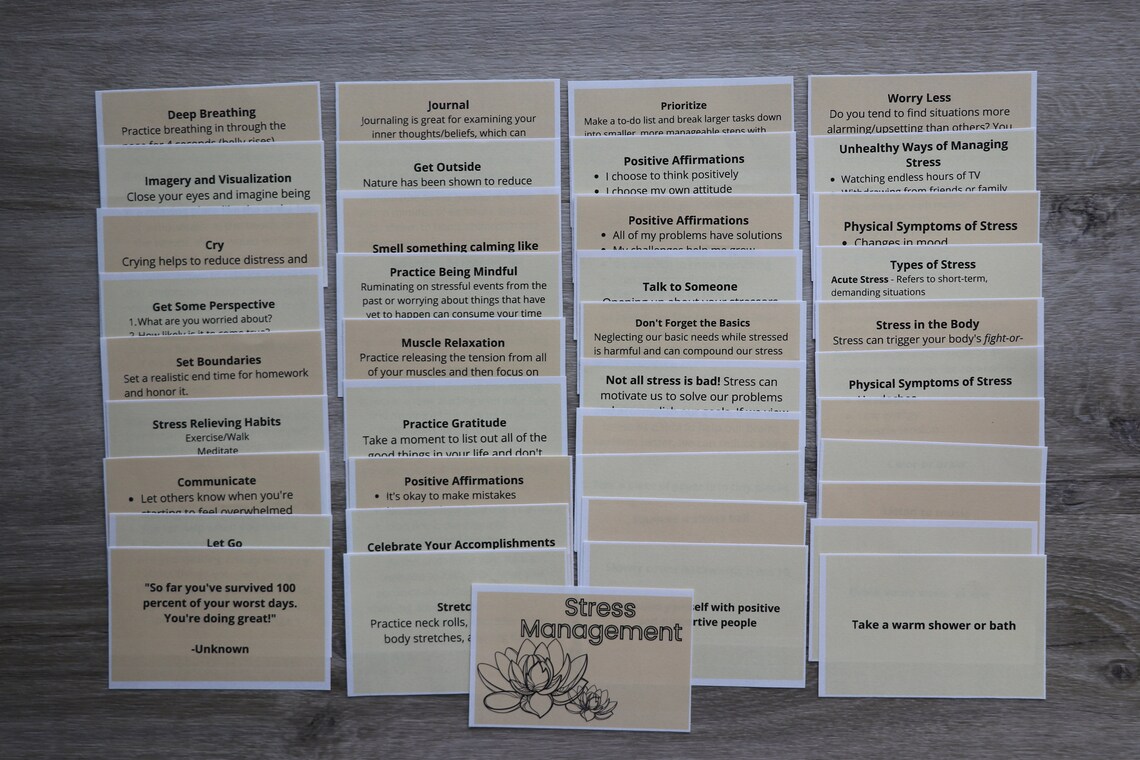 Deep Breathing
Practice breathing in through the
nose for 4 seconds (belly rises)
Imagery and Visualization
Close your eyes and imagine being
Cry
Crying helps to reduce distress and
Get Some Perspective
1. What are you worried about?
2. How likely is it to come true?
Set Boundaries
Set a realistic end time for homework
and honor it.
Stress Relieving Habits
Exercise/Walk
Meditate
Communicate
• Let others know when you're
starting to feel overwhelmed
Let Go
"So far you've survived 100
percent of your worst days.
You're doing great!"
-Unknown
Journal
Journaling is great for examining your
inner thoughts/beliefs, which can
Get Outside
Nature has been shown to reduce
Smell something calming like
Practice Being Mindful
Ruminating on stressful events from the
past or worrying about things that have
yet to happen can consume your time
Muscle Relaxation
Practice releasing the tension from all
of your muscles and then focus on
Practice Gratitude
Take a moment to list out all of the
good things in your life and don't
Positive Affirmations
• It's okay to make mistakes
Celebrate Your Accomplishments
Stretc
Practice neck rolls,
body stretches, a
Stress
Management
Prioritize
Make a to-do list and break larger tasks down
into smaller, more manageable steps with
Positive Affirmations
• I choose to think positively
• I choose my own attitude
Positive Affirmations
• All of my problems have solutions
• My challenges help me grow
Talk to Someone
Opening up about your stressors
Don't Forget the Basics
Neglecting our basic needs while stressed
is harmful and can compound our stress
Not all stress is bad! Stress can
motivate us to solve our problems
self with positive
rtive people
Worry Less
Do you tend to find situations more
alarming/upsetting than others? You
Unhealthy Ways of Managing
Stress
• Watching endless hours of TV
• Withdrawing from friends or family
Physical Symptoms of Stress
• Changes in mood
Types of Stress
Acute Stress - Refers to short-term,
demanding situations
Stress in the Body
Stress can trigger your body's fight-or-
Physical Symptoms of Stress
• Headaches
Take a warm shower or bath